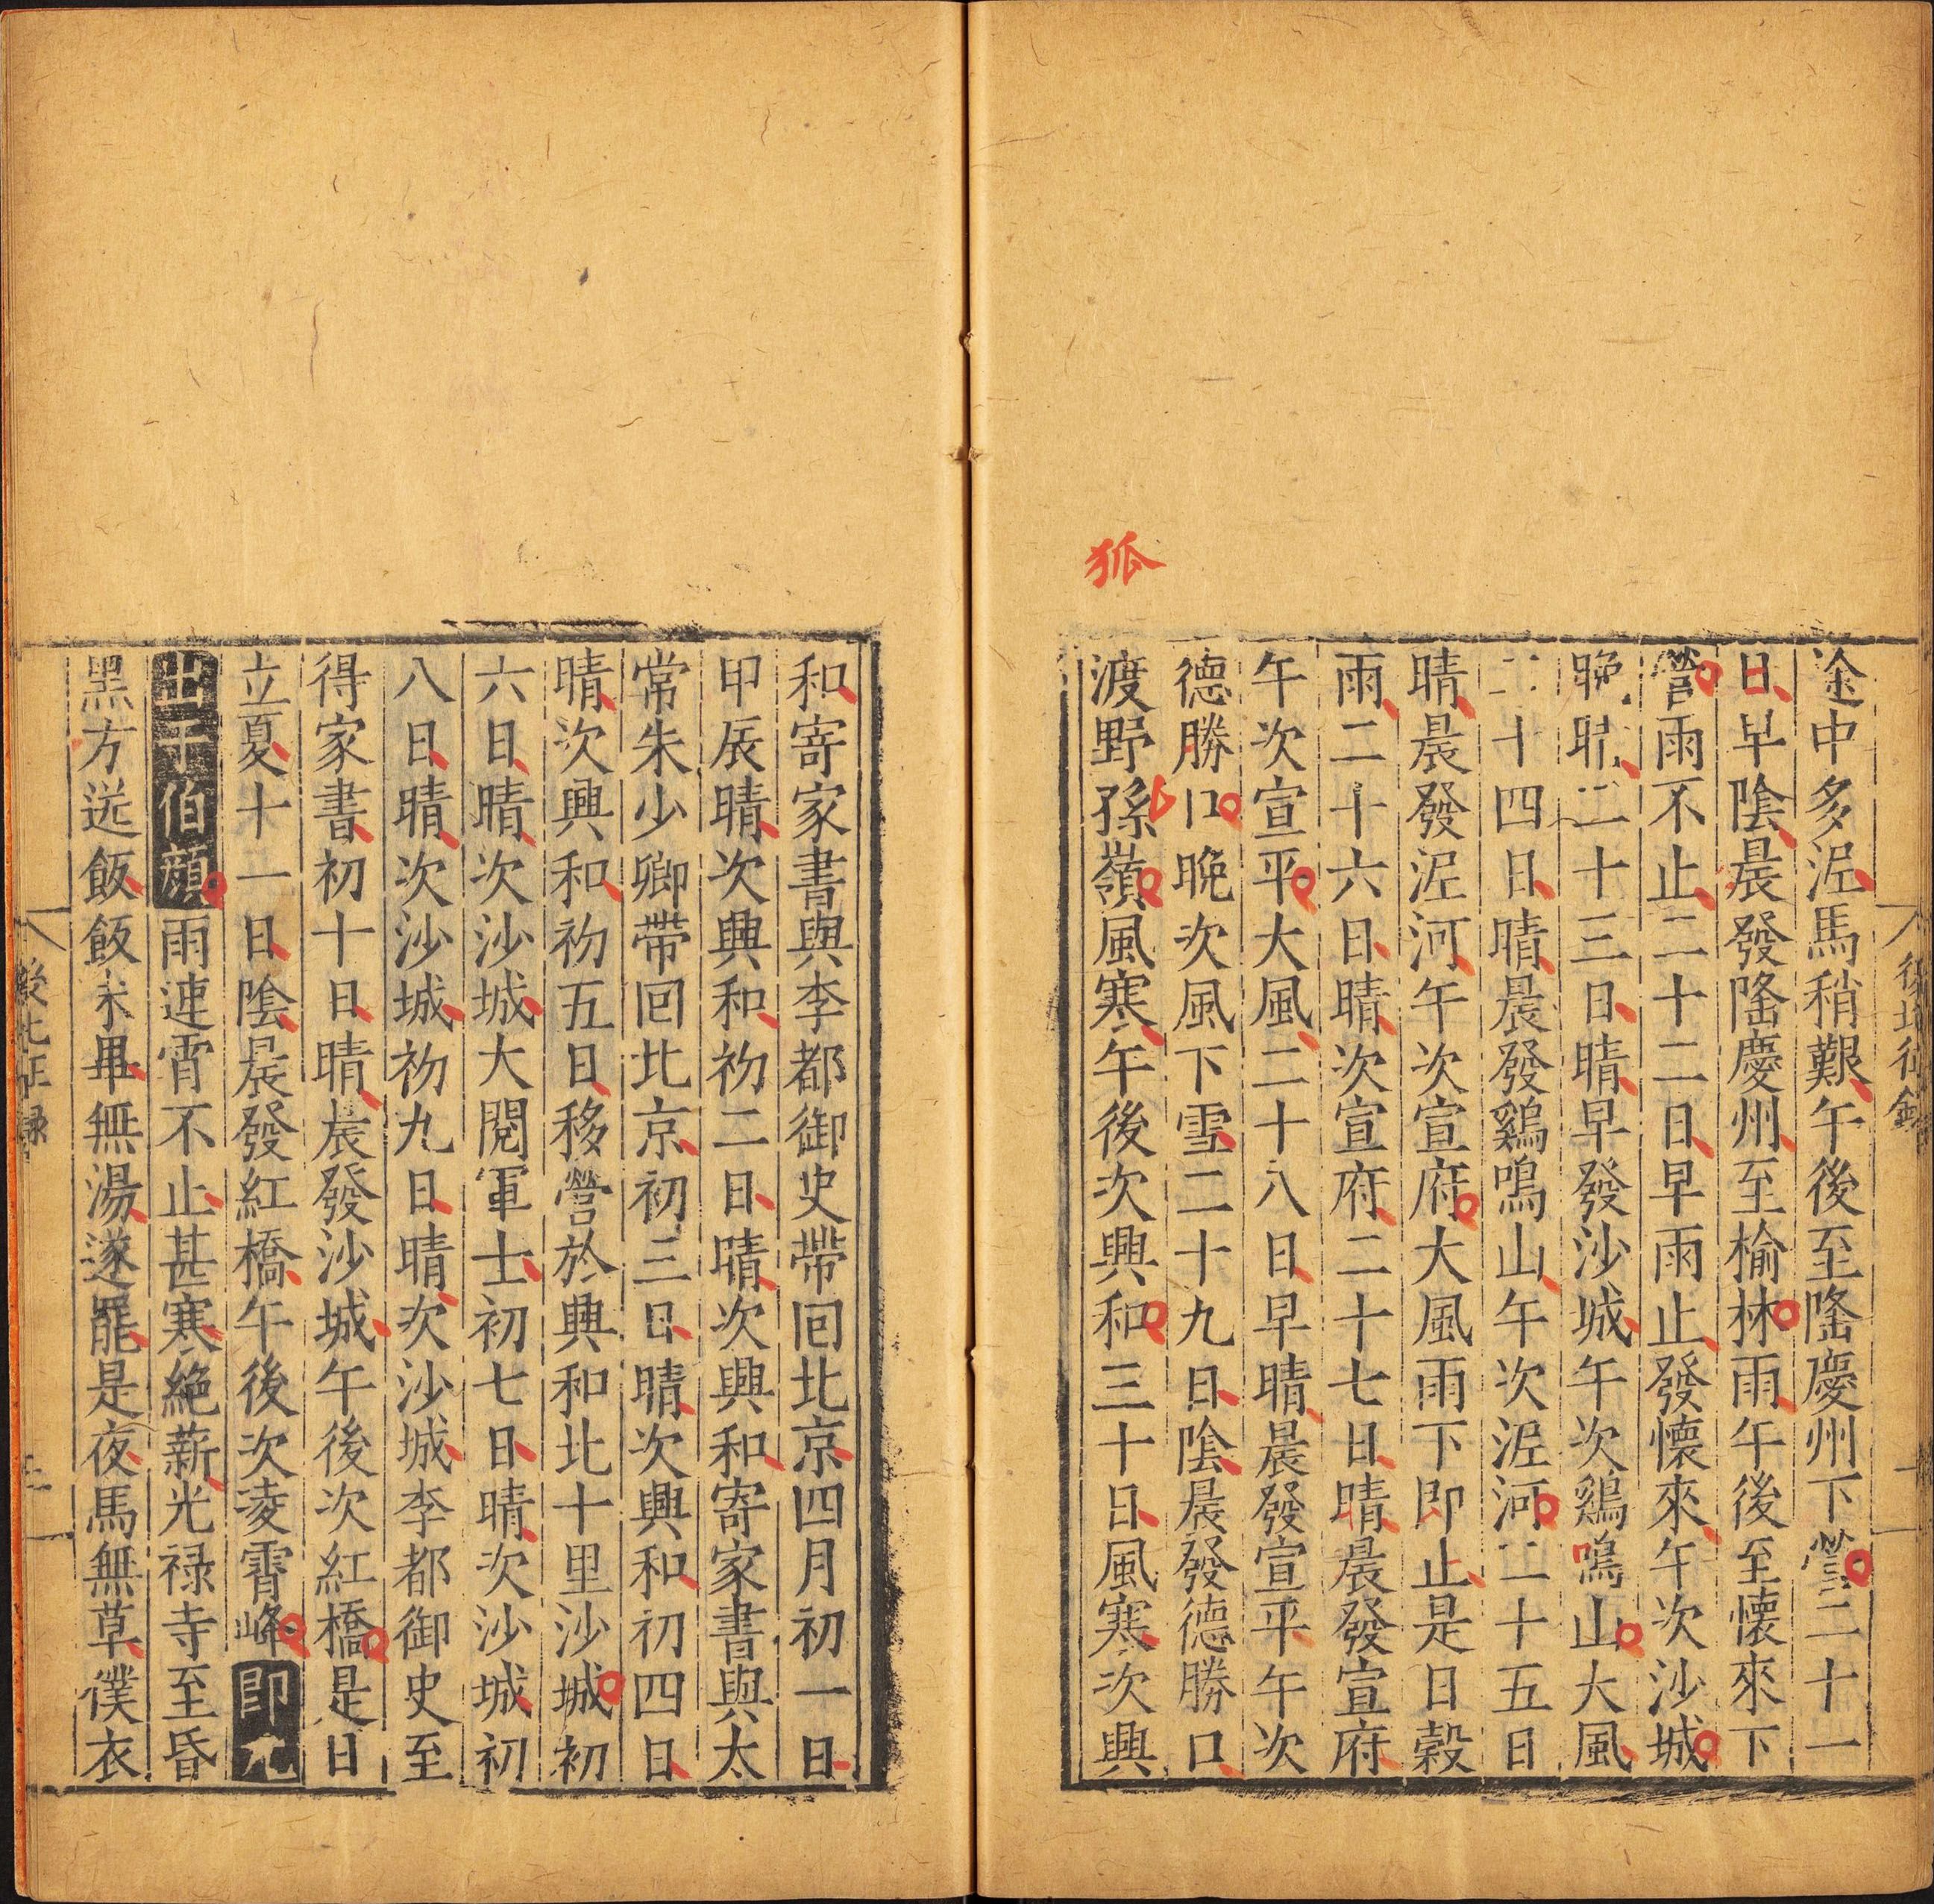 後北征錄
途中多泥馬稍艱午後至隆慶州下營二十一
日早陰晨發隆慶州至榆林雨午後至懷來下
營雨不止二十二日早雨止發懷來午次沙城
晚晴二十三日晴早發沙城午次鷄鳴山大風
二十四日晴晨發鷄鳴山午次泥河二十五日
晴晨發泥河午次宣府大風雨下即止是日穀
雨二十六日晴次宣府二十七日晴晨發宣府
午次宣平大風二十八日早晴晨發宣平午次
德勝口晚次風下雪二十九日陰晨發德勝口
狐
渡野孫嶺風寒午後次興和三十日風寒次興
和寄家書與李都御史帶回北京四月初一日
甲辰晴次興和初二日晴次興和寄家書與太
常朱少卿帶回北京初三日晴次興和初四日
晴次興和初五日移營於興和北十里沙城初
六日晴次沙城大閱軍士初七日晴次沙城初
八日晴次沙城初九日晴次沙城李都御史至
得家書初十日晴晨發沙城午後次紅橋是日
立夏十一日陰晨發紅橋午後次凌霄峰即九
出千伯顏雨連宵不止甚寒絕薪光祿寺至昏
黑方送飯飯未畢無湯遂罷是夜馬無草僕衣
北征錄